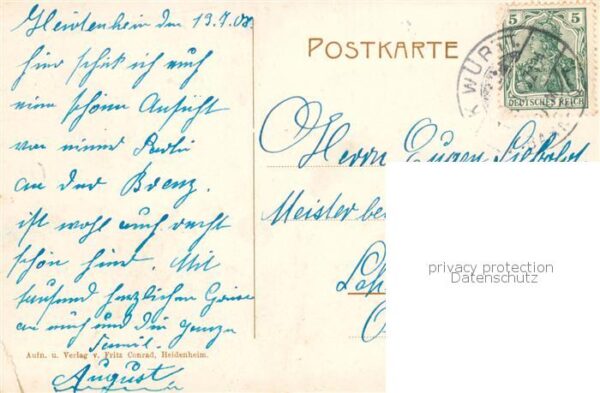 Heidenheim den 13.7.08.
hier schik ich euch
eine schöne Ansicht
von einer Partie
an der Brenz.
ist wohl auch recht
schön hier. Mit
tausend herzlichen Grüsse
an euch und die ganze
Famil.
August
Aufn. u. Verlag v. Fritz Conrad, Heidenheim.
POSTKARTE
5 5
DEUTSCHES REICH
K. WÜRTT.
Herrn Eugen Siebold
Meister be
privacy protection
Datenschutz